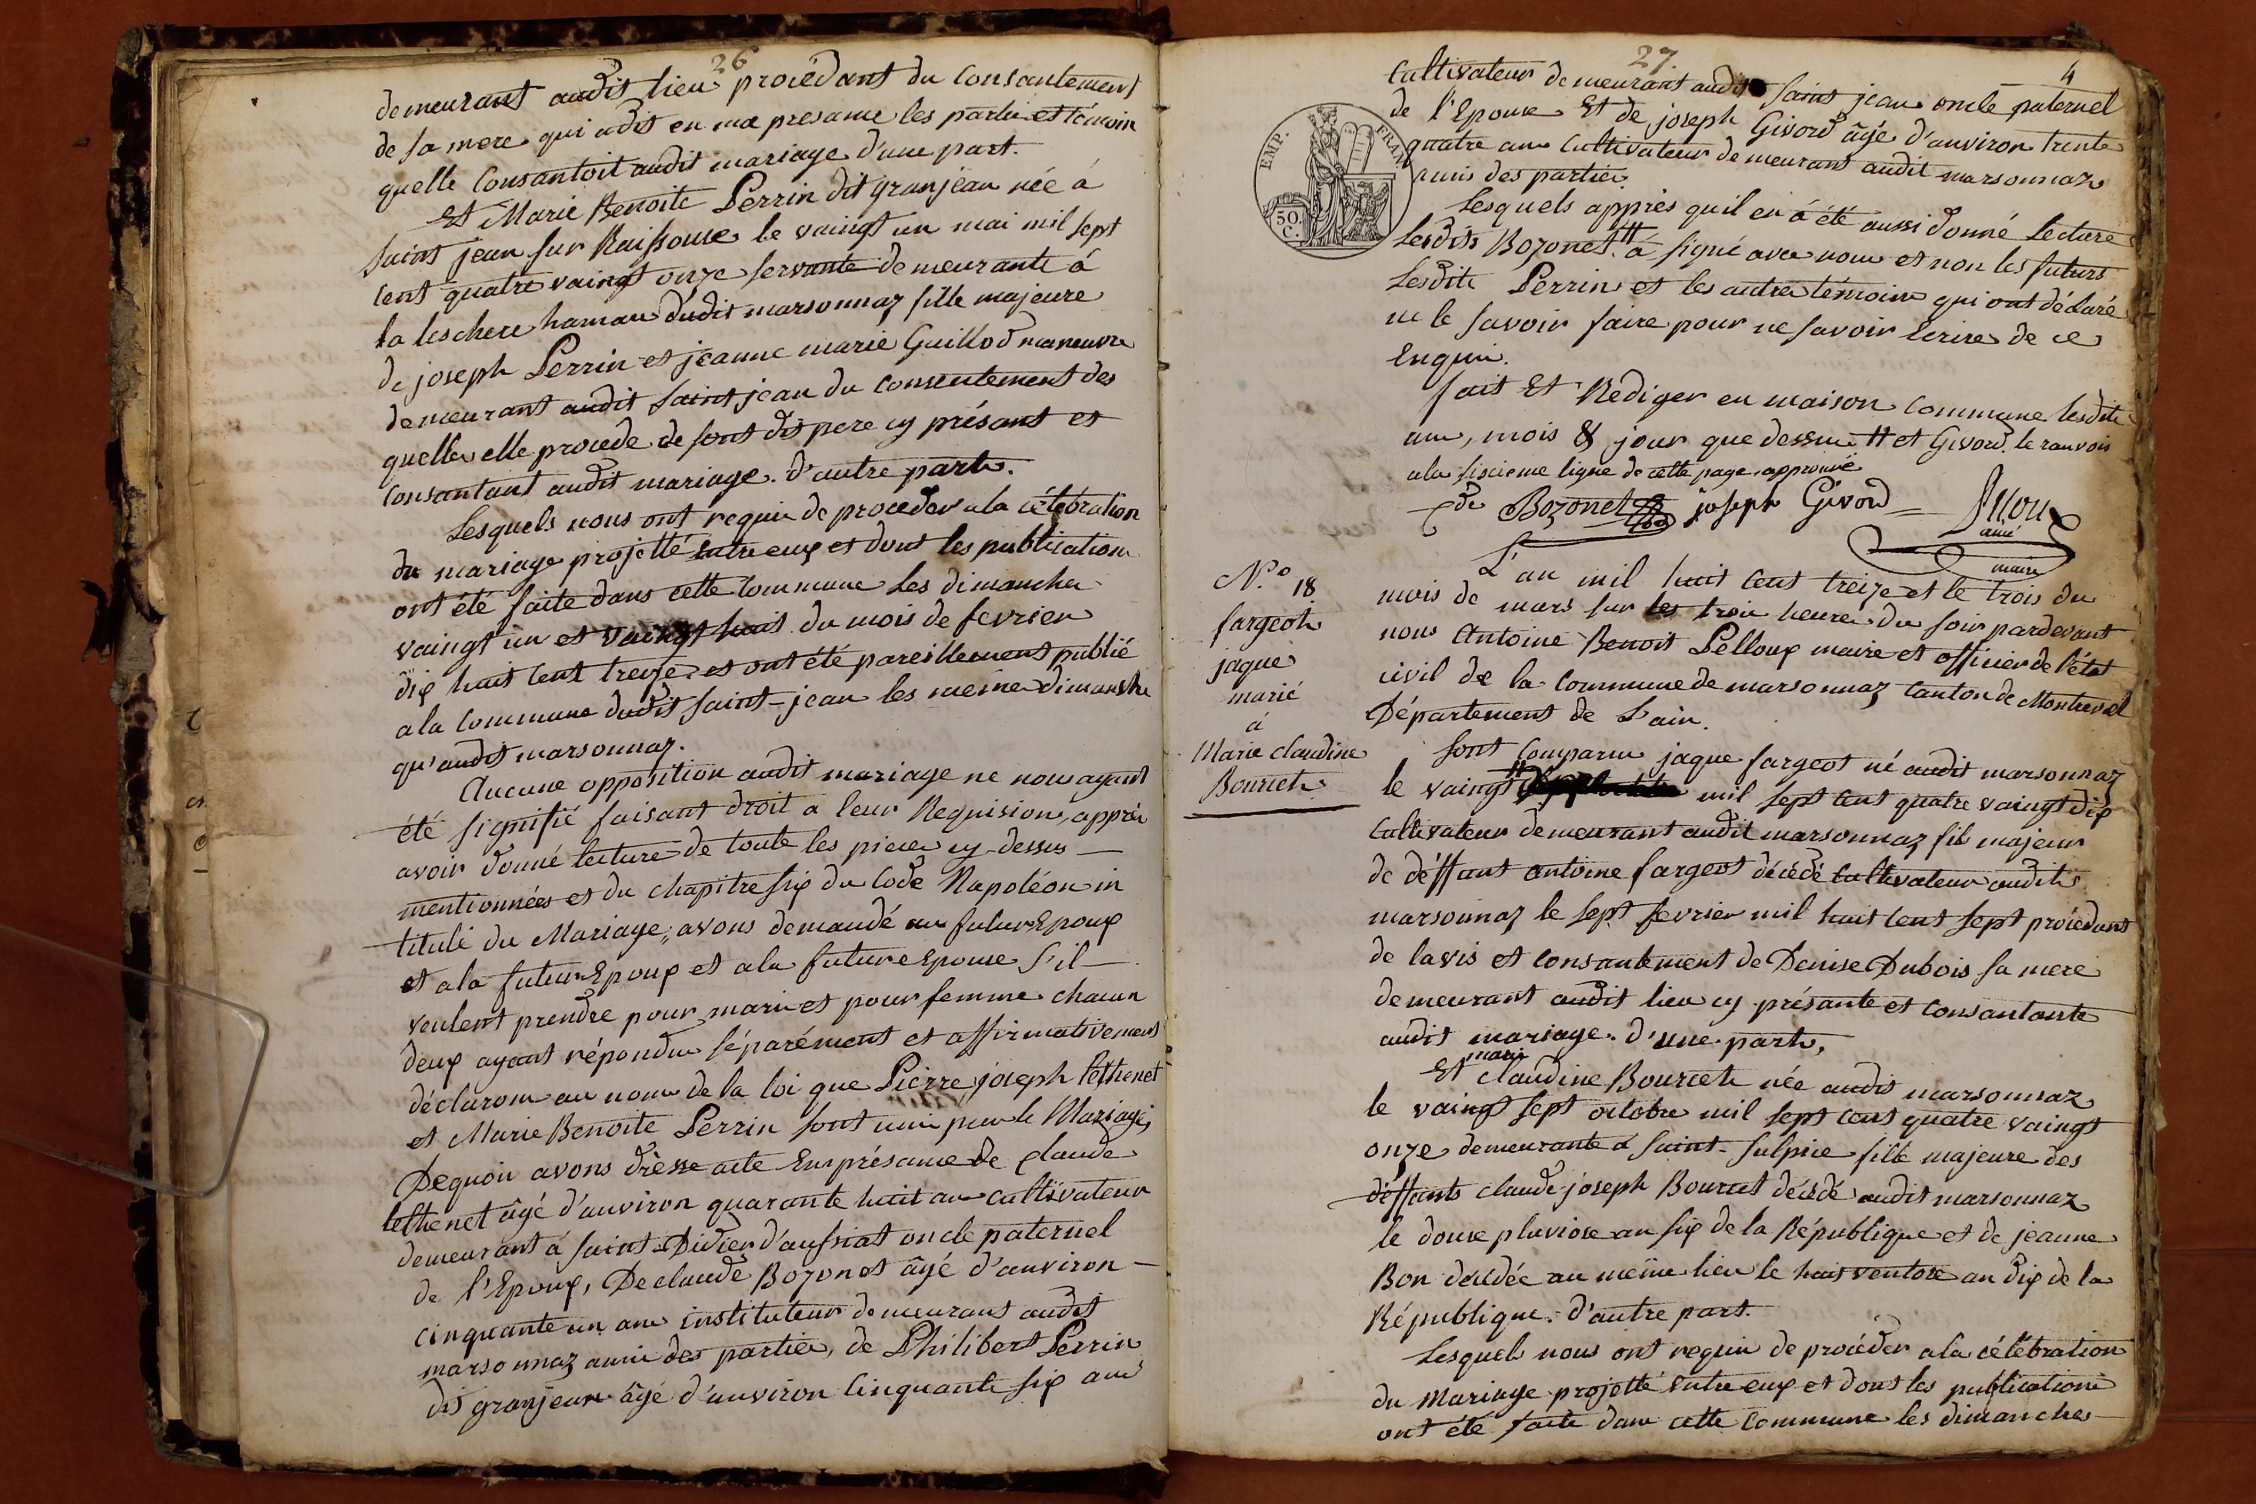 26
demeurant audit lieu procédant du Consantement
de sa mere qui adit en ma presance les partie et témoin
quelle Consantoit audit mariage d'une part.
Et Marie Benoite Perrin dit granjean née á
saint jean sur Raissouse le vaingt un mai mil sept
cent quatre vaingt onze servante demeurante á
la leschere hamau dudit marsonnaz fille majeure
de joseph Perrin et jeanne marie Guillod maneuvre
demeurant audit saint jean du consentement des
quelle elle procede de sont dit pere cy présant et
consantant audit mariage. d'autre part.
Lesquels nous ont requis de proceder ala célébration
du mariage projetté entre eux et dont les publication
ont été faite dans cette Commune les dimanche
vaingt un et vaingt huit du mois de fevrier
dix huit cent treize et ont été pareillement publié
ala Commune dudit saint-jean les meme dimanche
qu'audit marsonnaz.
Aucune opposition audit mariage ne nous ayant
été signifié faisant droit a leur Requision, apprès
avoir donné lecture de toute les piece cy-dessus
mentionnées et du chapitre six du Code Napoléon in
titulé du Mariage, avons demandé au futur Epoux
et ala futur Epoux et ala future Epouse s'il
veulent prendre pour mari et pour femme chacun
deux ayant répondu séparément et affirmativement
déclarons au nom de la loi que Pierre joseph lethenet
et Marie Benoite Perrin sont unis par le Mariage,
Dequoi avons dresse acte En présance de claude
lethenet âgé d'anviron quarante huit ans cultivateur
demeurant á saint Didier d'aussiat oncle paternel
de l'Epoux, De claude Bozonet âgé d'anviron
cinquante un ans instituteur demeurant audit
marsonnaz ami des partie, de Philibert Perrin
dit granjean âgé d'anviron Cinquante six ans
27.
4
Cultivateur demeurant audit saint jean oncle paternel
de l'Epouse Et de joseph Givord âgé d'anviron trente
quatre ans Cultivateur demeurant audit marsonnaz
amis des partie.
EMP. FRAN
50 C.
Lesquels apprès quil en á été aussi donné Lecture
Lesdits Bozonet # á signé avec nous et non les futurs
Lesdite Perrin et les autre témoins qui ont déclaré
ne le savoir faire pour ne savoir Ecrire de ce
Enquis.
fait Et Rediger en maison Commune lesdits
ans, mois & jour que dessus # et Givord. le ranvois
ala sisieme ligne de cette page approuvé
de Bozonet joseph Givord
maire
N.o 18
fargeot
jaque
marié
á
Marie claudine
Bourcet
L'an mil huit cent treize et le trois du
mois de mars sur les trois heure du soir pardevant
nous Antoine Benoit Pelloux maire et officier de l'état
civil de la Commune de marsonnaz Canton de Montrevel
Département de L'ain.
Sont Comparus jaque fargeot né audit marsonnaz
le vaingt # mil sept cent quatre vaingt dix
Cultivateur demeurant audit marsonnaz fils majeur
de déffunt antoine fargeot décédé Cultivateur audit
marsonnaz le sept fevrier mil huit cent sept procédant
de lavis et consantement de Denise Dubois sa mere
demeurant audit lieu cy présante et consantante
audit mariage. d'une part,
Et marie claudine Bourcet née audit marsonnaz
le vaingt sept octobre mil sept cent quatre vaingt
onze demeurante á Saint-Sulpice fille majeure des
déffunts claude joseph Bourcet décédé audit marsonnaz
le douse pluviose an six de la République et de jeanne
Bon décédée au même lieu le huit ventose an dix de la
République. d'autre part.
Lesquels nous ont requis de procéder ala célébration
du Mariage projetté entre eux et dont les publications
ont été faite dans cette Commune les dimanches